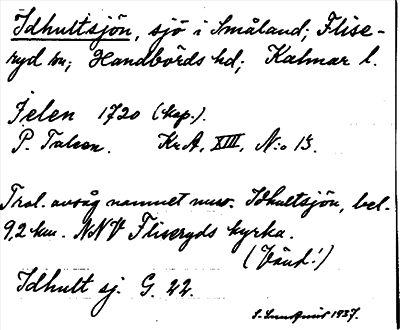 Idhultsjön, sjö i Småland; Flise-
ryd sn; Handbörds hd; Kalmar l.
Jelen 1720 (kop.).
P. Tulson. Kr.A, XIII, N:o 13.
Trol. avsåg namnet nuv. Idhultsjön, bel.
9,2 km. NNV Fliseryds kyrka.
(Vänd!)
Idhult sj. G. 22.
1937.